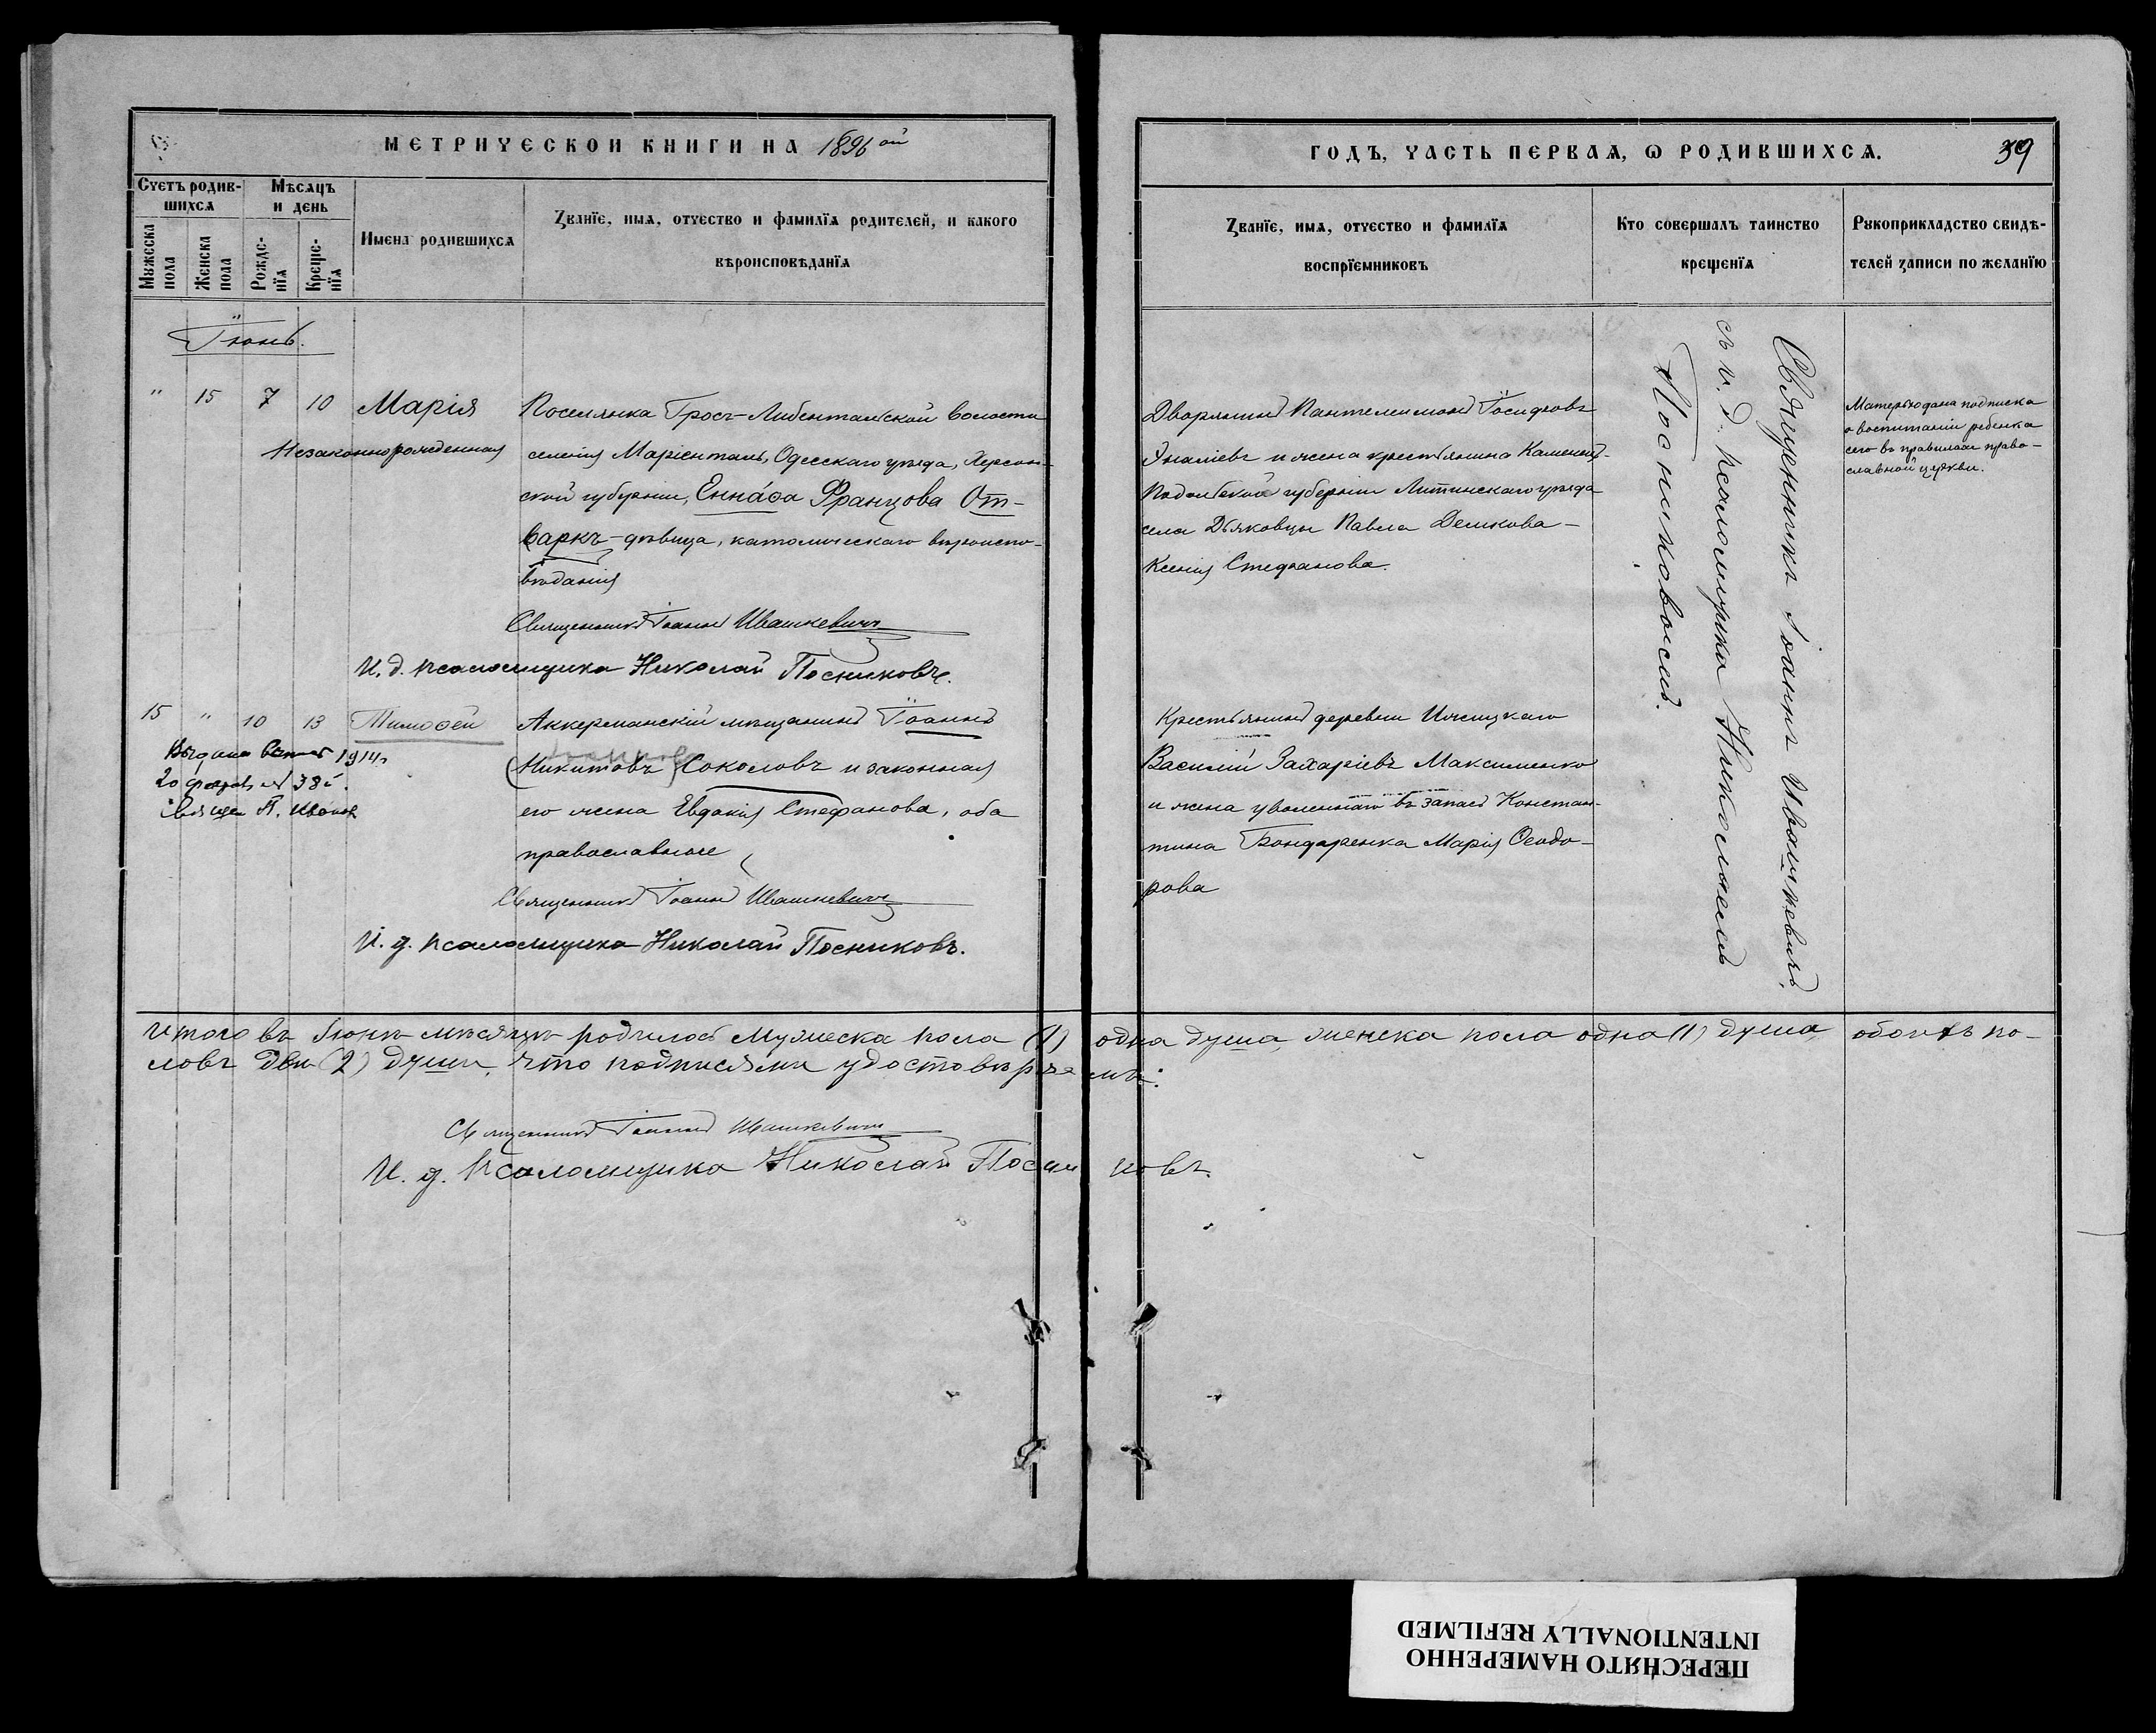 МЕТРИЧЕСКОИ КНИГИ НА 1896 ой
ГОДЪ, ЧАСТЬ ПЕРВАѦ, Ѡ РОДИВШИХСѦ. 39
Счетъ родив-
шихсѧ
Мѣсѧцъ
и день
Мꙋжеска
пола
Женска
пола
Рожде-
нїѧ
Креще-
нїѧ
Имена родившихсѧ
Ꙁванїе, имѧ, отчество и фамилїѧ родителей, и какого
вѣроисповѣданїѧ
Ꙁванїе, имѧ, отчество и фамилїѧ
воспрїемниковъ
Кто совершалъ таинство
крещенїѧ
Рꙋкоприкладство свидѣ-
телей ꙁаписи по желанїю
Іюнь.
" 15 7 10 Марія
Незаконнорожденная
Поселянка Гросъ-Либентальской волости
селенія Маріенталь, Одесскаго уѣзда, Херсон-
ской губерніи, Енна́фа Францова От-
баркъ - дѣвица, католическаго вѣроиспо-
вѣданія
Священникъ Іоаннъ Ивашкевичъ
И. д. псаломщика Николай Посниковъ.
Дворянинъ Пантелеимонъ Іосифовъ
и жена крестьянина Каменецъ-
Подольской губерніи Литинскаго уѣзда
села Дьяковцы Павла Демкова -
Ксенія Стефанова.
Священникъ Іоаннъ Ивашкевичъ,
съ и. д. псаломщика Николаемъ
Посниковымъ.
Матерью дана подписка
о воспитаніи ребенка
сего въ правилахъ право-
славной церкви.
15 " 10 13 Тимофей
Выдана 1914 г.
20 № 38
Свящ. П. Иванов
Аккерманскій мѣщанинъ Іоаннъ
(Никитовъ) Соколовъ и законная
его жена Евдокія Стефанова, оба
православные
Священникъ Іоаннъ Ивашкевичъ
И. д. псаломщика Николай Посниковъ.
Крестьянинъ деревни
Василій Захаріевъ Максименко
и жена уволеннаго въ запасъ Констан-
тина Бондаренка Марія Ѳеодо-
рова
Итого въ Іюнѣ мѣсяцѣ родилось мужеска пола (1) одна душа женска пола одна (1) душа, обоихъ по-
ловъ двѣ (2) души, что подписями удостовѣряемъ:
Священникъ Іоаннъ Ивашкевичъ
И. д. Псаломщика Николай Посниковъ.
ПЕРЕСНЯТО НАМЕРЕННО
INTENTIONALLY REFILMED